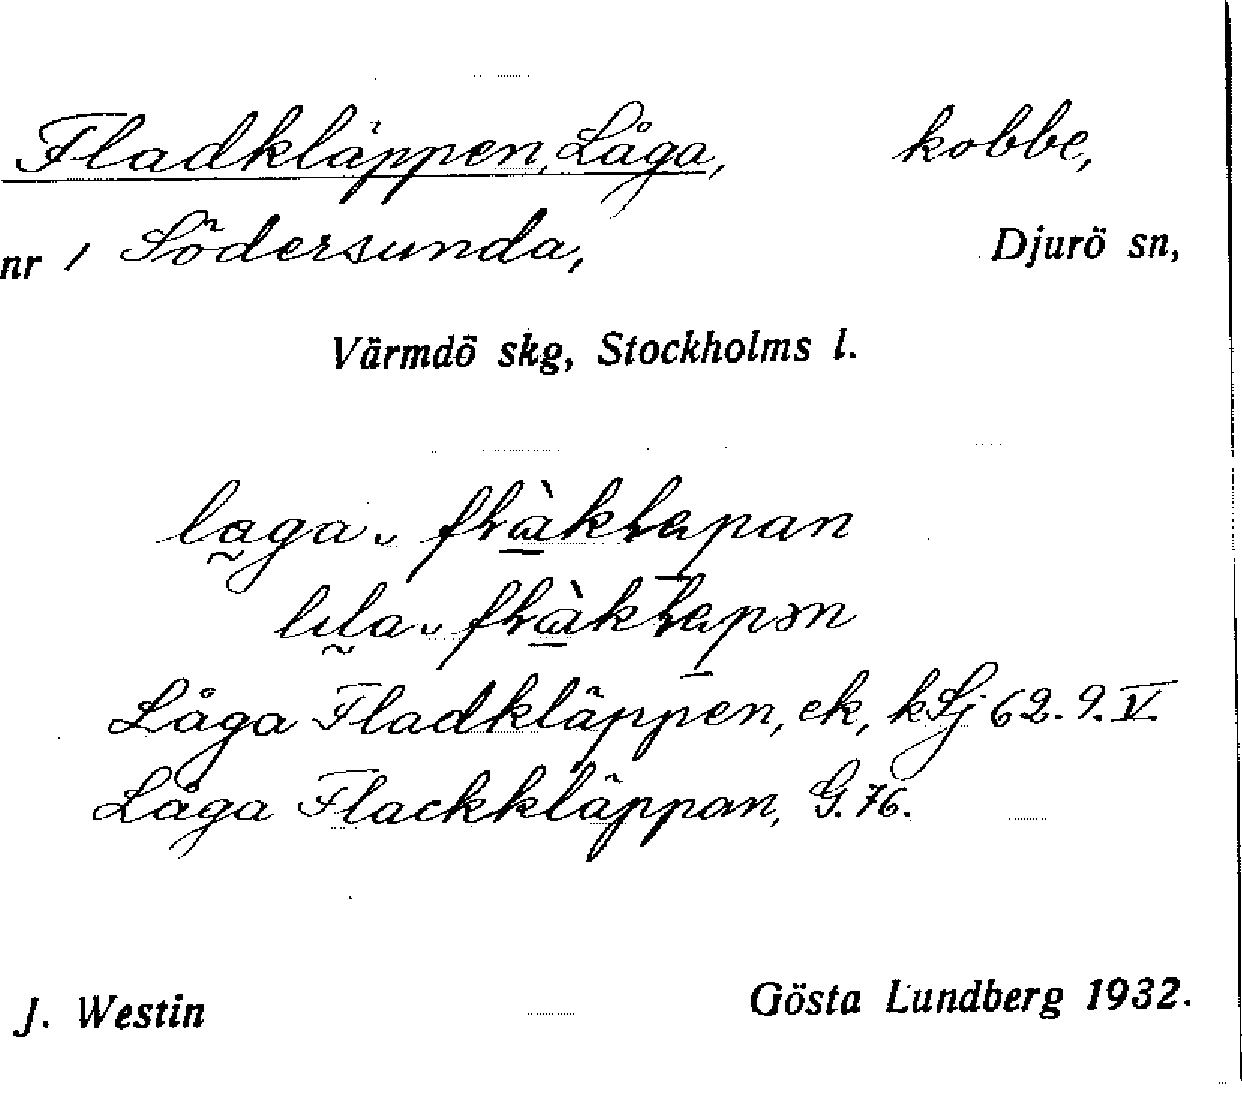 Fladkläppen, Låga, kobbe,
nr 1 Södersunda, Djurö sn,
Värmdö skg, Stockholms l.
Låga Fladkläppen, ek, kSj 62. 9. V.
Låga Flackkläppan, G. 76.
J. Westin Gösta Lundberg 1932.